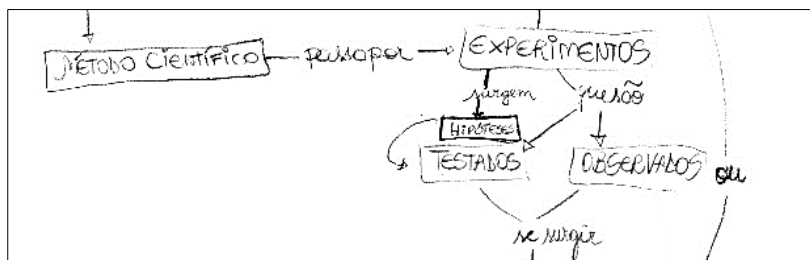 MÉTODO CIENTÍFICO passa por EXPERIMENTOS
surgem que são
HIPÓTESES
TESTADOS OBSERVADOS ou
se surgir